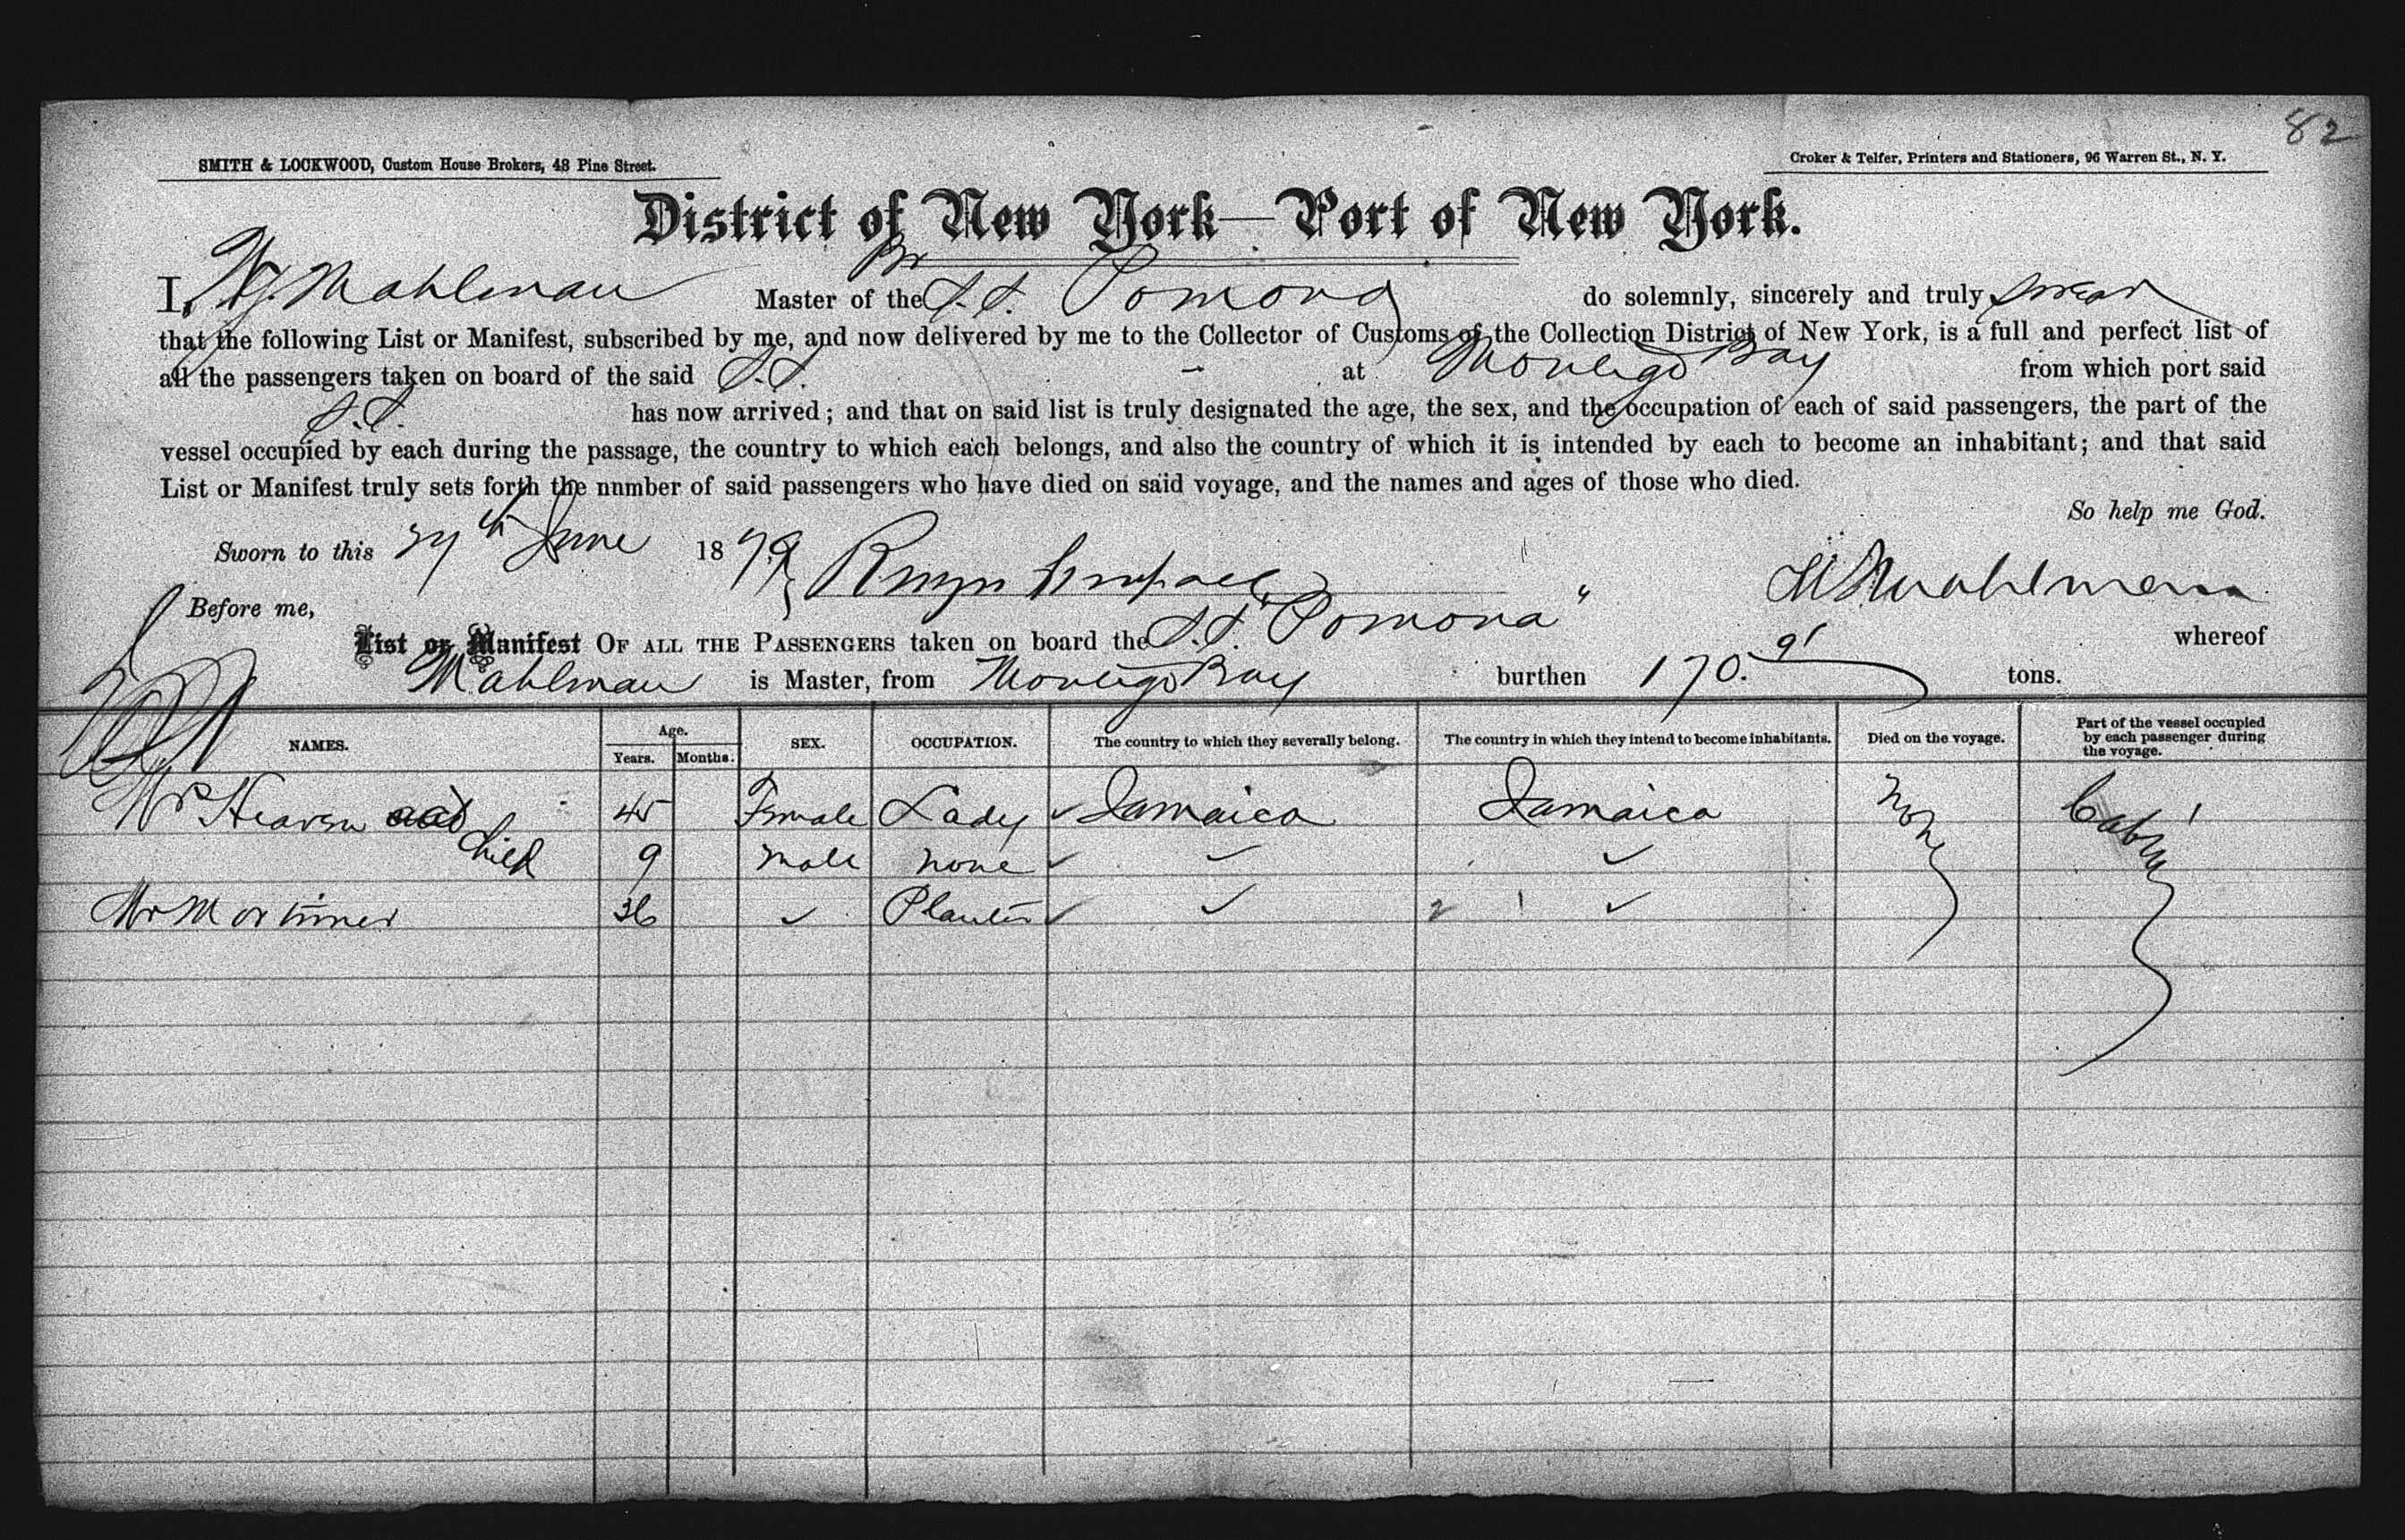 82
SMITH & LOCKWOOD, Custom House Brokers, 48 Pine Street.
Croker & Telfer, Printers and Stationers, 96 Warren St., N. Y.
District of New York—Port of New York.
I, Mahlman Master of the Br S.S. Pomona do solemnly, sincerely and truly swear
that the following List or Manifest, subscribed by me, and now delivered by me to the Collector of Customs of the Collection District of New York, is a full and perfect list of
all the passengers taken on board of the said S.S. at Montego Bay from which port said
S.S. has now arrived; and that on said list is truly designated the age, the sex, and the occupation of each of said passengers, the part of the
vessel occupied by each during the passage, the country to which each belongs, and also the country of which it is intended by each to become an inhabitant; and that said
List or Manifest truly sets forth the number of said passengers who have died on said voyage, and the names and ages of those who died.
So help me God.
Sworn to this 27th June 1879 Mahlman
Before me,
List or Manifest OF ALL THE PASSENGERS taken on board the S.S. "Pomona" whereof
Mahlman is Master, from Montego Bay burthen 170.91 tons.
NAMES. Age. Years. Months. SEX. OCCUPATION. The country to which they severally belong. The country in which they intend to become inhabitants. Died on the voyage. Part of the vessel occupied by each passenger during the voyage.
Mrs Heaven and 45 Female Lady ✓ Jamaica Jamaica None Cabin
Child 9 Male none ✓ ✓ ✓
Mr Mortimer 36 ✓ Planter ✓ ✓ 2 ✓